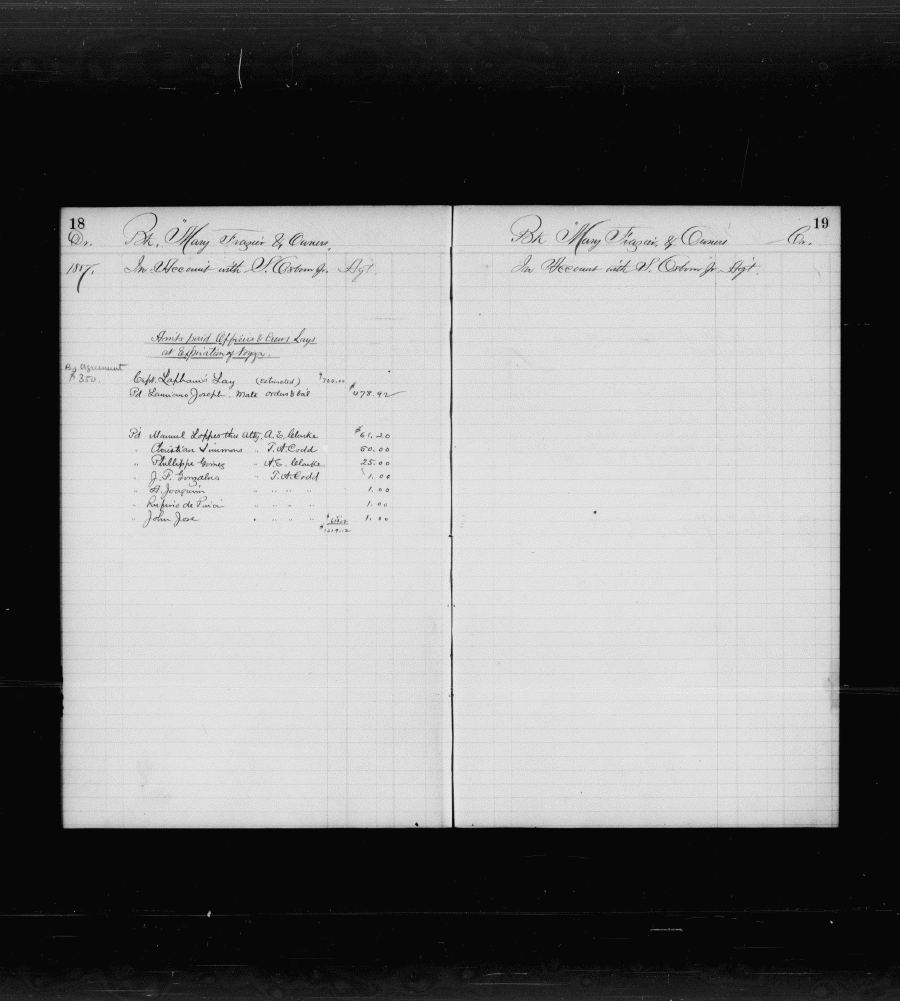 18
Dr. Bk. "Mary Frazier" & Owners
1887. In Account with S. Osborn Jr. Agt.
Amts paid Officers & Crews Lays
at Expiration of Voyge.
By Agreement
$350.
Capt. Lapham's Lay (Estimated) $700.00
Pd Joseph. Mate orders & bal $478.92
Pd Manuel Lopper thro Atty. A. E. Clarke $61.20
" Christian Simmons " T. A. Codd 50.00
" Phillippe Gomez " A. E. Clarke 25.00
" J. P. Gonzalves " T. A. Codd 1.00
" A. Joaquin " " " " 1.00
" Rufino de 1.00
" John Jose " " " " 1.00
19
Bk "Mary Frazier" & Owners Cr.
In Account with S. Osborn Jr. Agt.